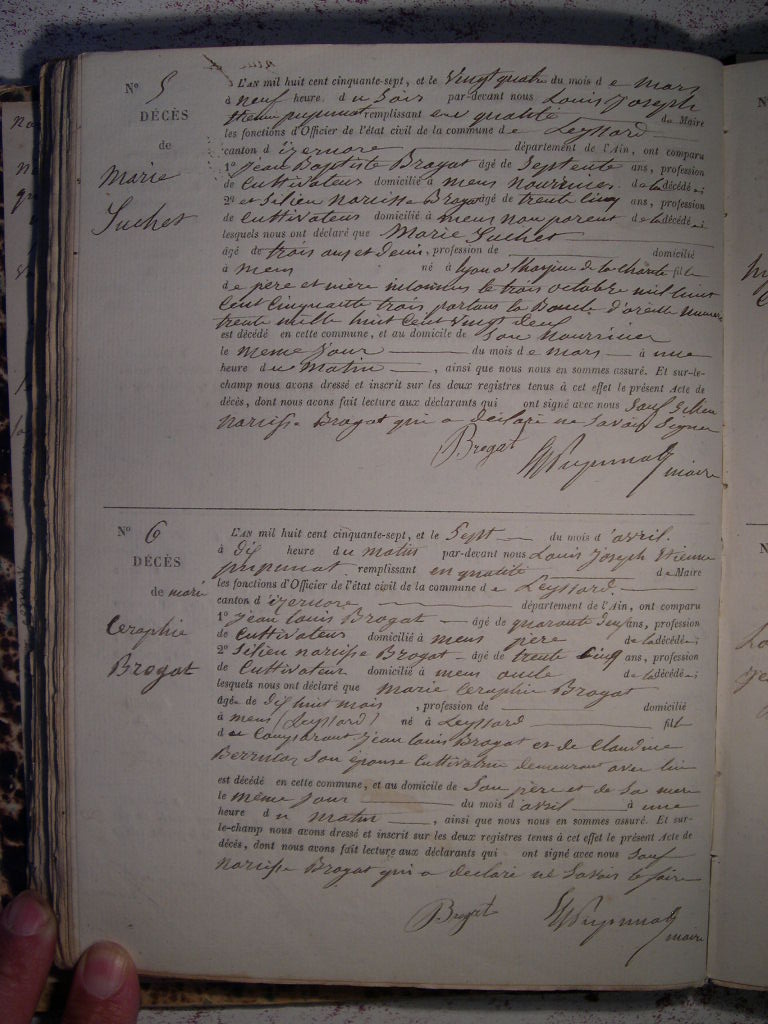 N° 5
DÉCÈS
de
Marie
Suchet
L'AN mil huit cent cinquante-sept, et le vingt quatre du mois d e mars
à neuf heure d u soir par-devant nous Louis Joseph
remplissant en qualité du Maire
les fonctions d'Officier de l'état civil de la commune d e Leyssard
canton d'izernore département de l'Ain, ont comparu
1° Jean Baptiste Brogat âgé de Septente ans, profession
de Cultivateur domicilié à mens nourricier de la décédé e;
2° et Silien narcisse Brogat âgé de trente cinq ans, profession
de Cultivateur domicilié à mens non parent de la décédé e;
lesquels nous ont déclaré que Marie Suchet
âgé de trois ans et demi, profession de domicilié
à mens né à Lyon a l'hospice de la charité fill
de père et mère inconnus le trois octobre mil huit
Cent Cinquante trois portant la Boucle d'oreille numero
trente mille huit Cent vingt deux
est décédé en cette commune, et au domicile de Son Nourricier
le meme Jour du mois d e mars à une
heure du matin, ainsi que nous nous en sommes assuré. Et sur-le-
champ nous avons dressé et inscrit sur les deux registres tenus à cet effet le présent Acte de
décès, dont nous avons fait lecture aux déclarants qui ont signé avec nous Sauf Silien
narcisse Brogat qui a déclaré ne Savoir Signer
Brogat
maire
N° 6
DÉCÈS
de marie
Ceraphie
Brogat
L'AN mil huit cent cinquante-sept, et le Sept du mois d'avril.
à dix heure du matin par-devant nous Louis Joseph Etienne
remplissant en qualité d e Maire
les fonctions d'Officier de l'état civil de la commune d e Leyssard.
canton d'izernore département de l'Ain, ont comparu
1° Jean Louis Brogat âgé de quarante Sept ans, profession
de Cultivateur domicilié à mens père de la décédé e;
2° Silien narcisse Brogat âgé de trente Cinq ans, profession
de Cultivateur domicilié à mens oncle de la décédé e;
lesquels nous ont déclaré que marie Ceraphie Brogat
âgée de dix huit mois, profession de domicilié
à mens (Leyssard) né à Leyssard fill
d u Comparant Jean Louis Brogat et de Claudine
Son épouse Cultivateur demeurant avec lui
est décédé en cette commune, et au domicile de Son père et de Sa mere
le même Jour du mois d'avril à une
heure du matin, ainsi que nous nous en sommes assuré. Et sur-
le-champ nous avons dressé et inscrit sur les deux registres tenus à cet effet le présent Acte de
décès, dont nous avons fait lecture aux déclarants qui ont signé avec nous Sauf
Narcisse Brogat qui a déclaré ne Savoir le faire
Brogat
maire